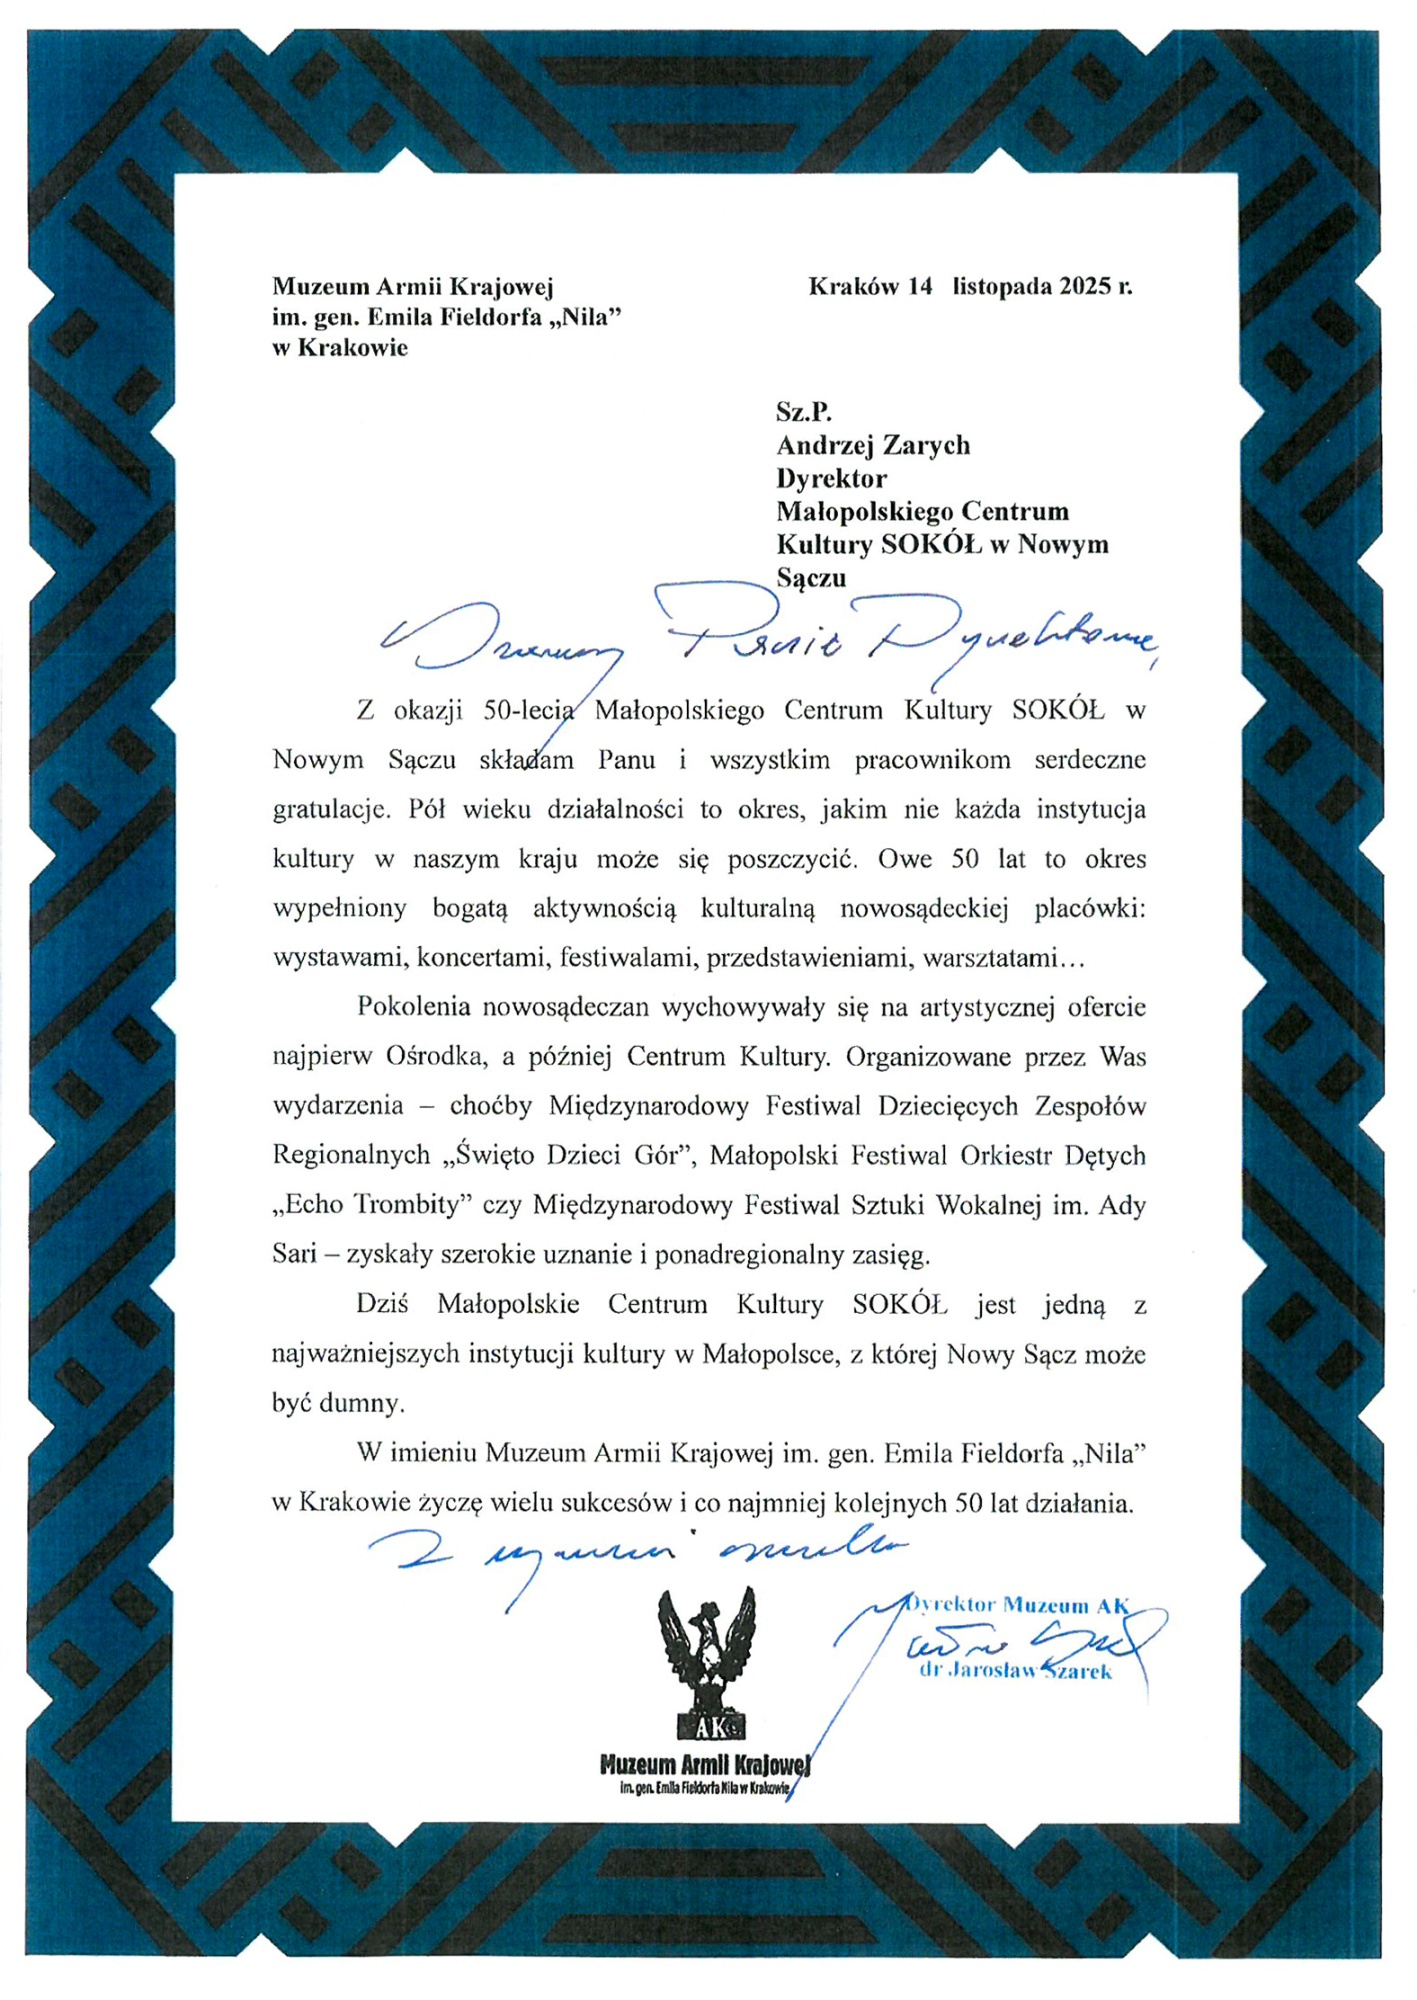 Muzeum Armii Krajowej
im. gen. Emila Fieldorfa „Nila”
w Krakowie
Kraków 14 listopada 2025 r.
Sz.P.
Andrzej Zarych
Dyrektor
Małopolskiego Centrum
Kultury SOKÓŁ w Nowym
Sączu
Szanowny Panie Dyrektorze,
Z okazji 50-lecia Małopolskiego Centrum Kultury SOKÓŁ w
Nowym Sączu składam Panu i wszystkim pracownikom serdeczne
gratulacje. Pół wieku działalności to okres, jakim nie każda instytucja
kultury w naszym kraju może się poszczycić. Owe 50 lat to okres
wypełniony bogatą aktywnością kulturalną nowosądeckiej placówki:
wystawami, koncertami, festiwalami, przedstawieniami, warsztatami…
Pokolenia nowosądeczan wychowywały się na artystycznej ofercie
najpierw Ośrodka, a później Centrum Kultury. Organizowane przez Was
wydarzenia – choćby Międzynarodowy Festiwal Dziecięcych Zespołów
Regionalnych „Święto Dzieci Gór”, Małopolski Festiwal Orkiestr Dętych
„Echo Trombity” czy Międzynarodowy Festiwal Sztuki Wokalnej im. Ady
Sari – zyskały szerokie uznanie i ponadregionalny zasięg.
Dziś Małopolskie Centrum Kultury SOKÓŁ jest jedną z
najważniejszych instytucji kultury w Małopolsce, z której Nowy Sącz może
być dumny.
W imieniu Muzeum Armii Krajowej im. gen. Emila Fieldorfa „Nila”
w Krakowie życzę wielu sukcesów i co najmniej kolejnych 50 lat działania.
Z wyrazami szacunku
Dyrektor Muzeum AK
dr Jarosław Szarek
AK
Muzeum Armii Krajowej
im. gen. Emila Fieldorfa Nila w Krakowie